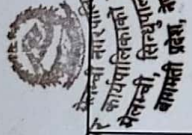 मेलम्ची नगरपालि
र कार्यपालिकाको
मेलम्ची, सिन्धुपाल
बागमती प्रदेश, ने